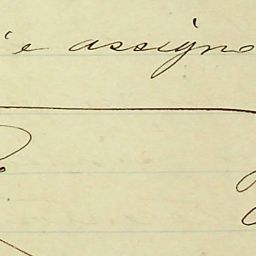 e assigno